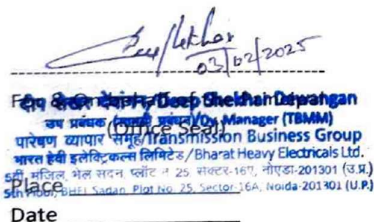 03/02/2025
दीप शेखर देवांगन/Deep Shekhar Dewangan
उप प्रबंधक Dy. Manager (TBMM)
(Office Seal)
पारेषण व्यापार समूह/Transmission Business Group
भारत हेवी इलेक्ट्रिकल्स लिमिटेड/Bharat Heavy Electricals Ltd.
5वीं मंजिल, भेल सदन प्लॉट न 25 सेक्टर-16ए, नोएडा-201301 (उ.प्र.)
Place
5th Floor, BHEL Sadan, Plot No. 25, Sector-16A, Noida-201301 (U.P.)
Date